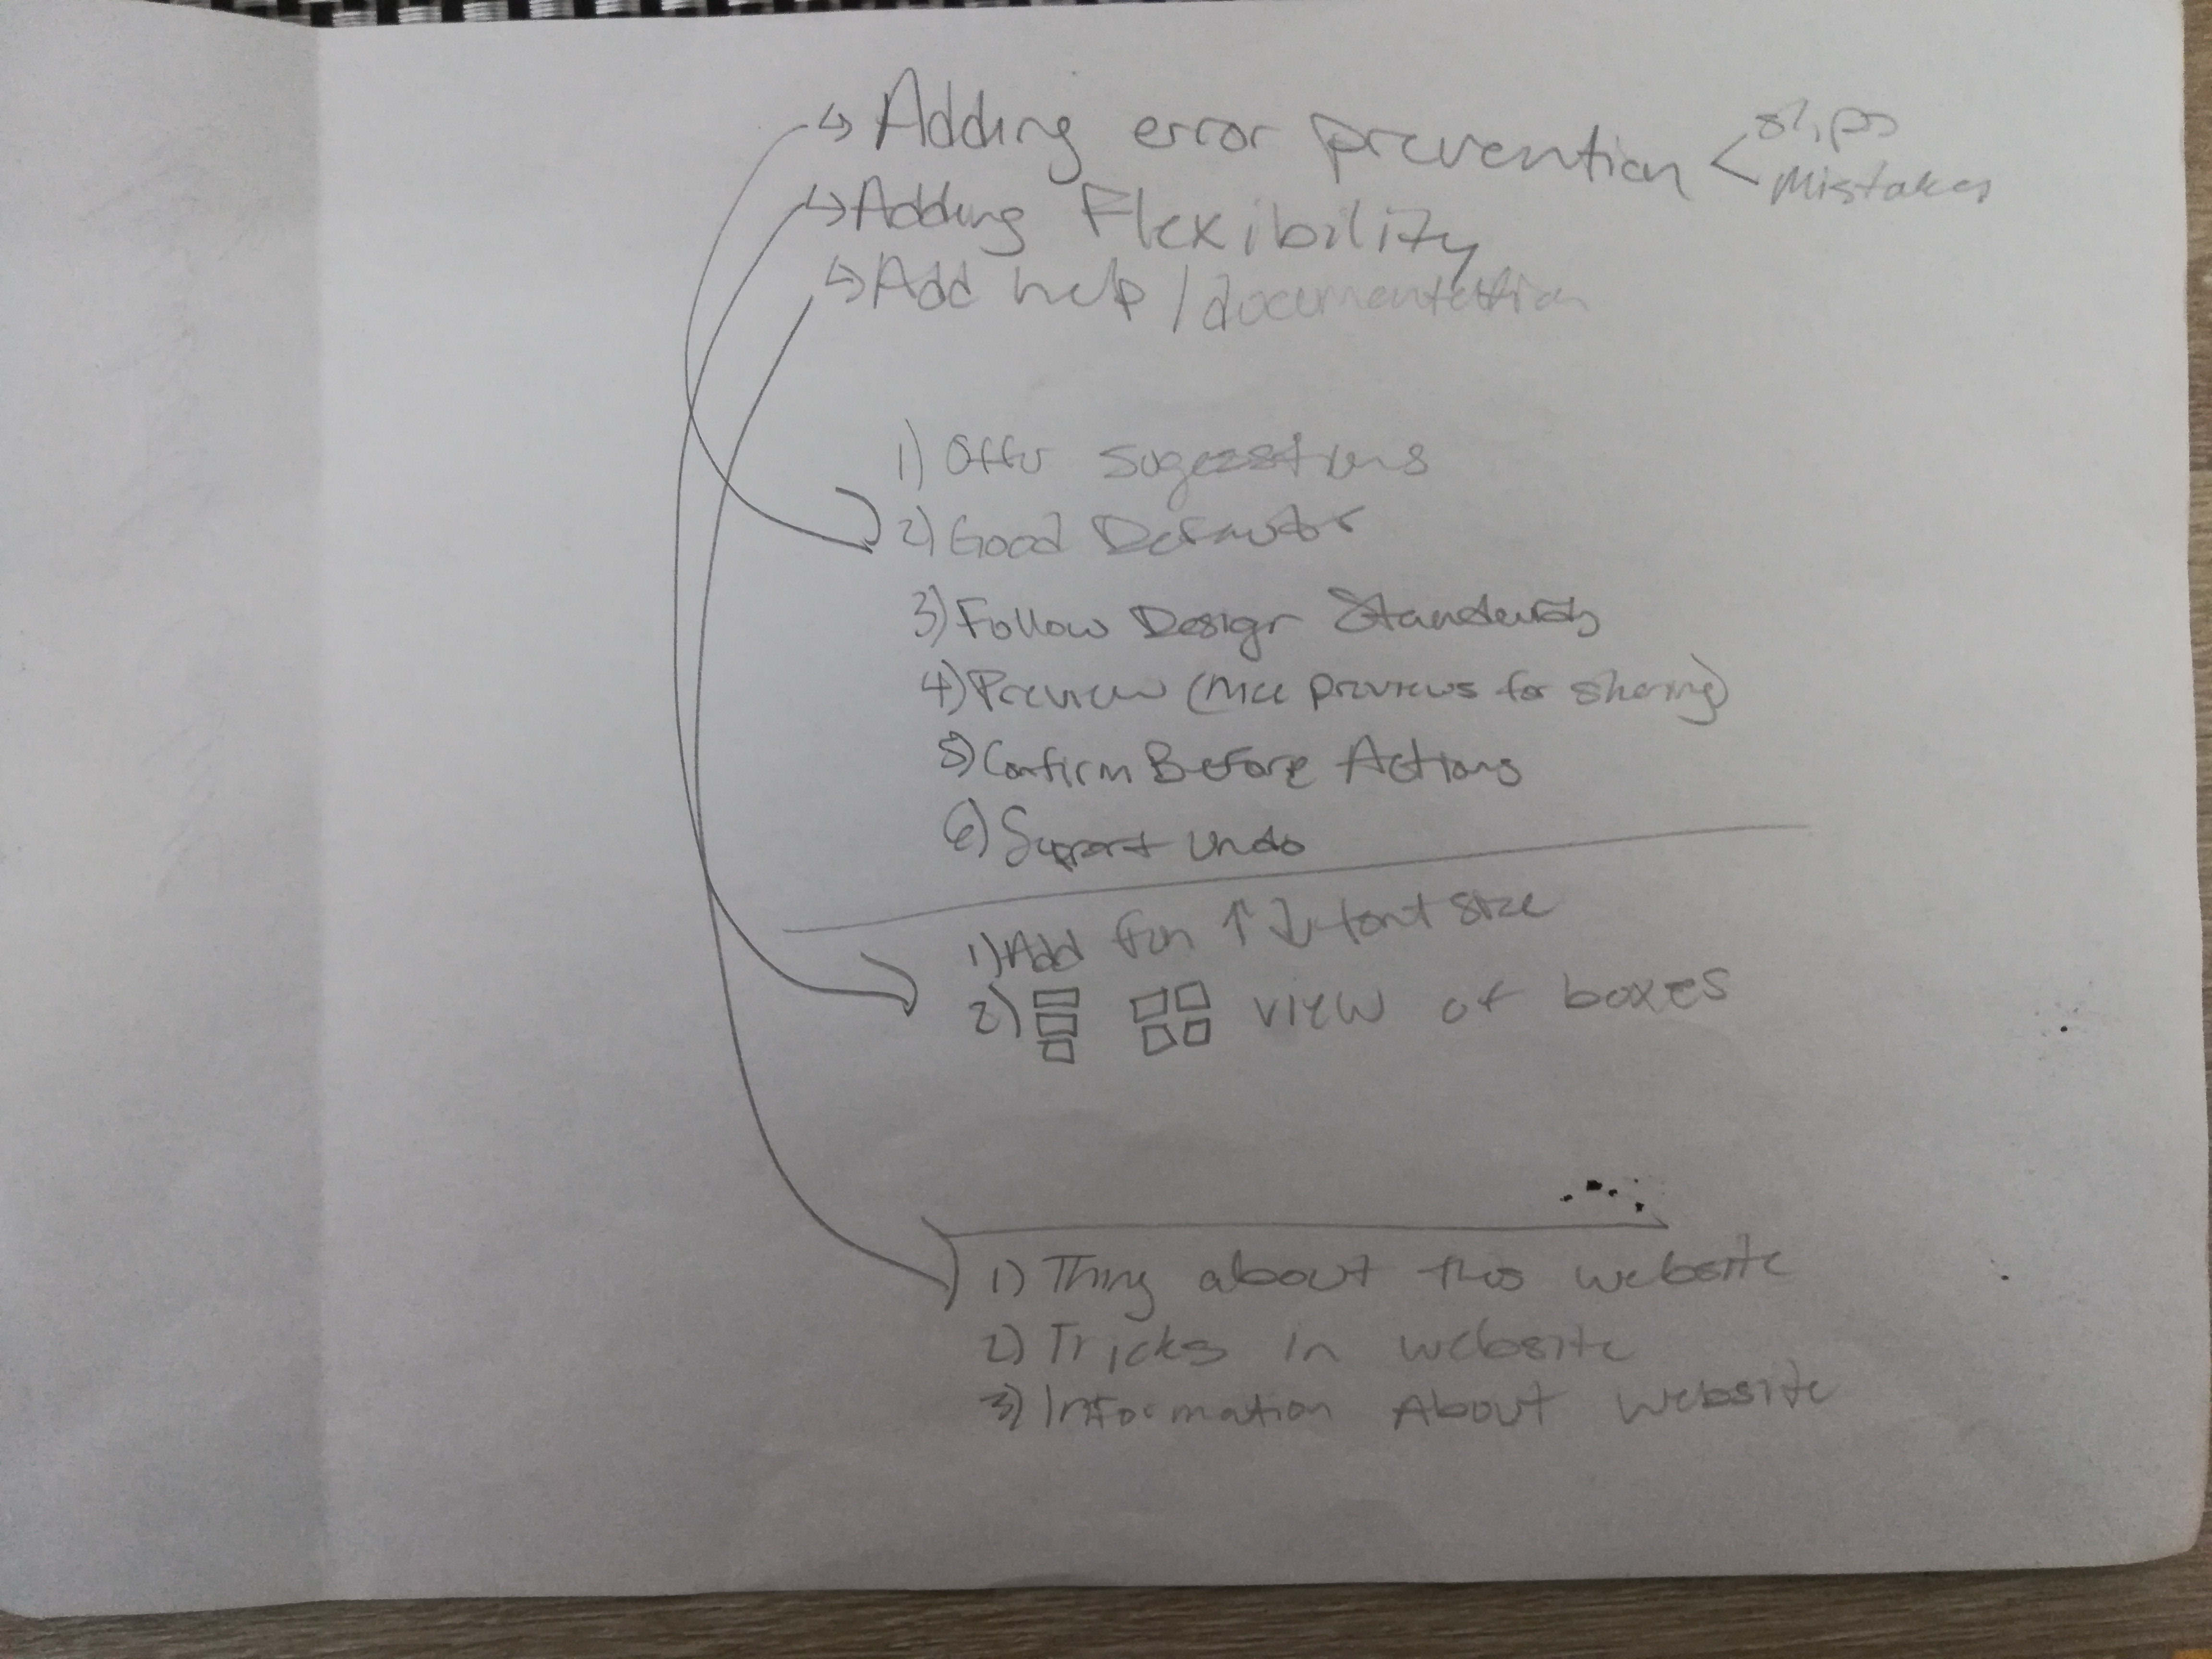 ↳ Adding error prevention < slips
mistakes
↳ Adding Flexibility
↳ Add help / documentation
1) Offer sugesstions
2) Good Defaults
3) Follow Design Standards
4) Preview (nice previews for sharing)
5) Confirm Before Actions
6) Support Undo
1) Add fun ↑ ↓ font size
2) view of boxes
1) Thing about this website
2) Tricks in website
3) Information About website